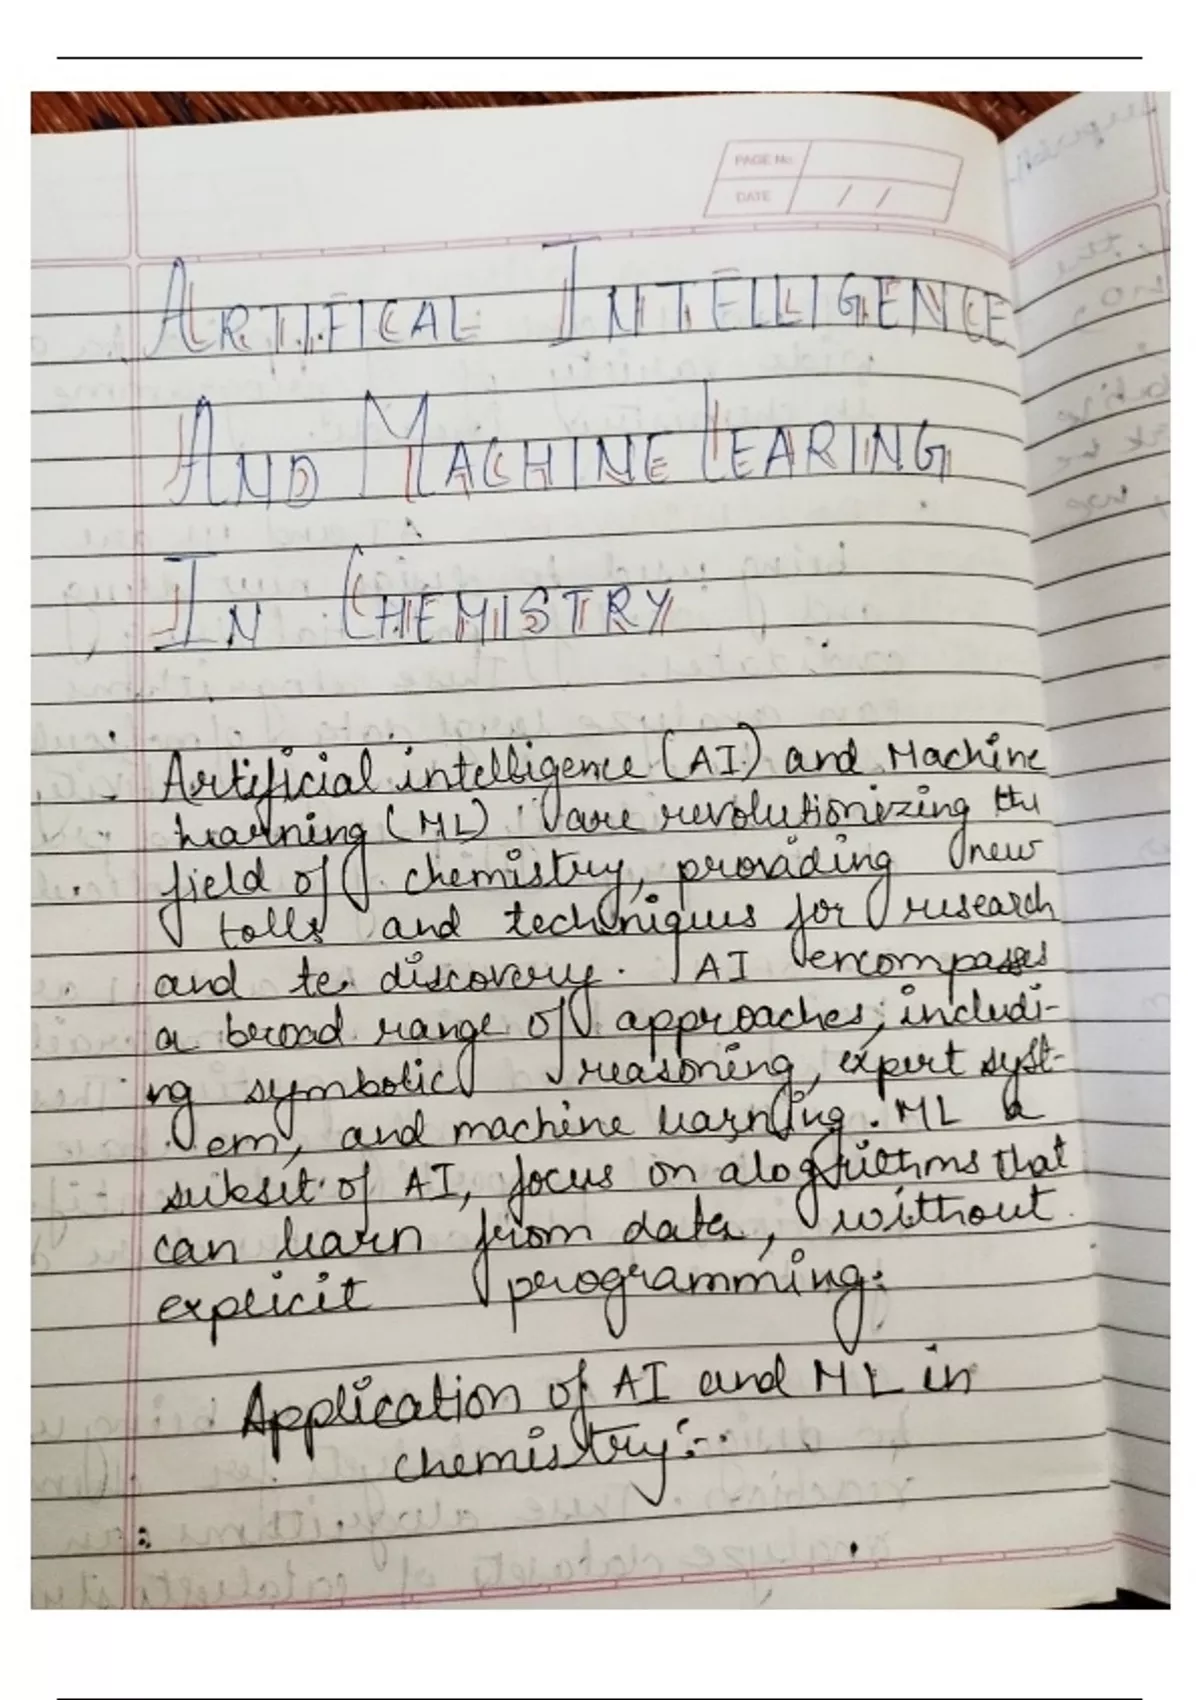 PAGE No.
DATE / /
ARTIFICAL INTELLIGENCE
AND MACHINE LEARING
IN CHEMISTRY
Artificial intelligence (AI) and Machine
learning (ML) are revolutionizing the
field of chemistry, providing new
tolls and techniques for research
and te discovery. AI encompasses
a broad range of approaches, includi-
ng symbolic reasoning, expert syst-
em, and machine learning. ML a
subset of AI, focus on alogrithms that
can learn from data, without
explicit programming.
Application of AI and ML in
chemistry:-